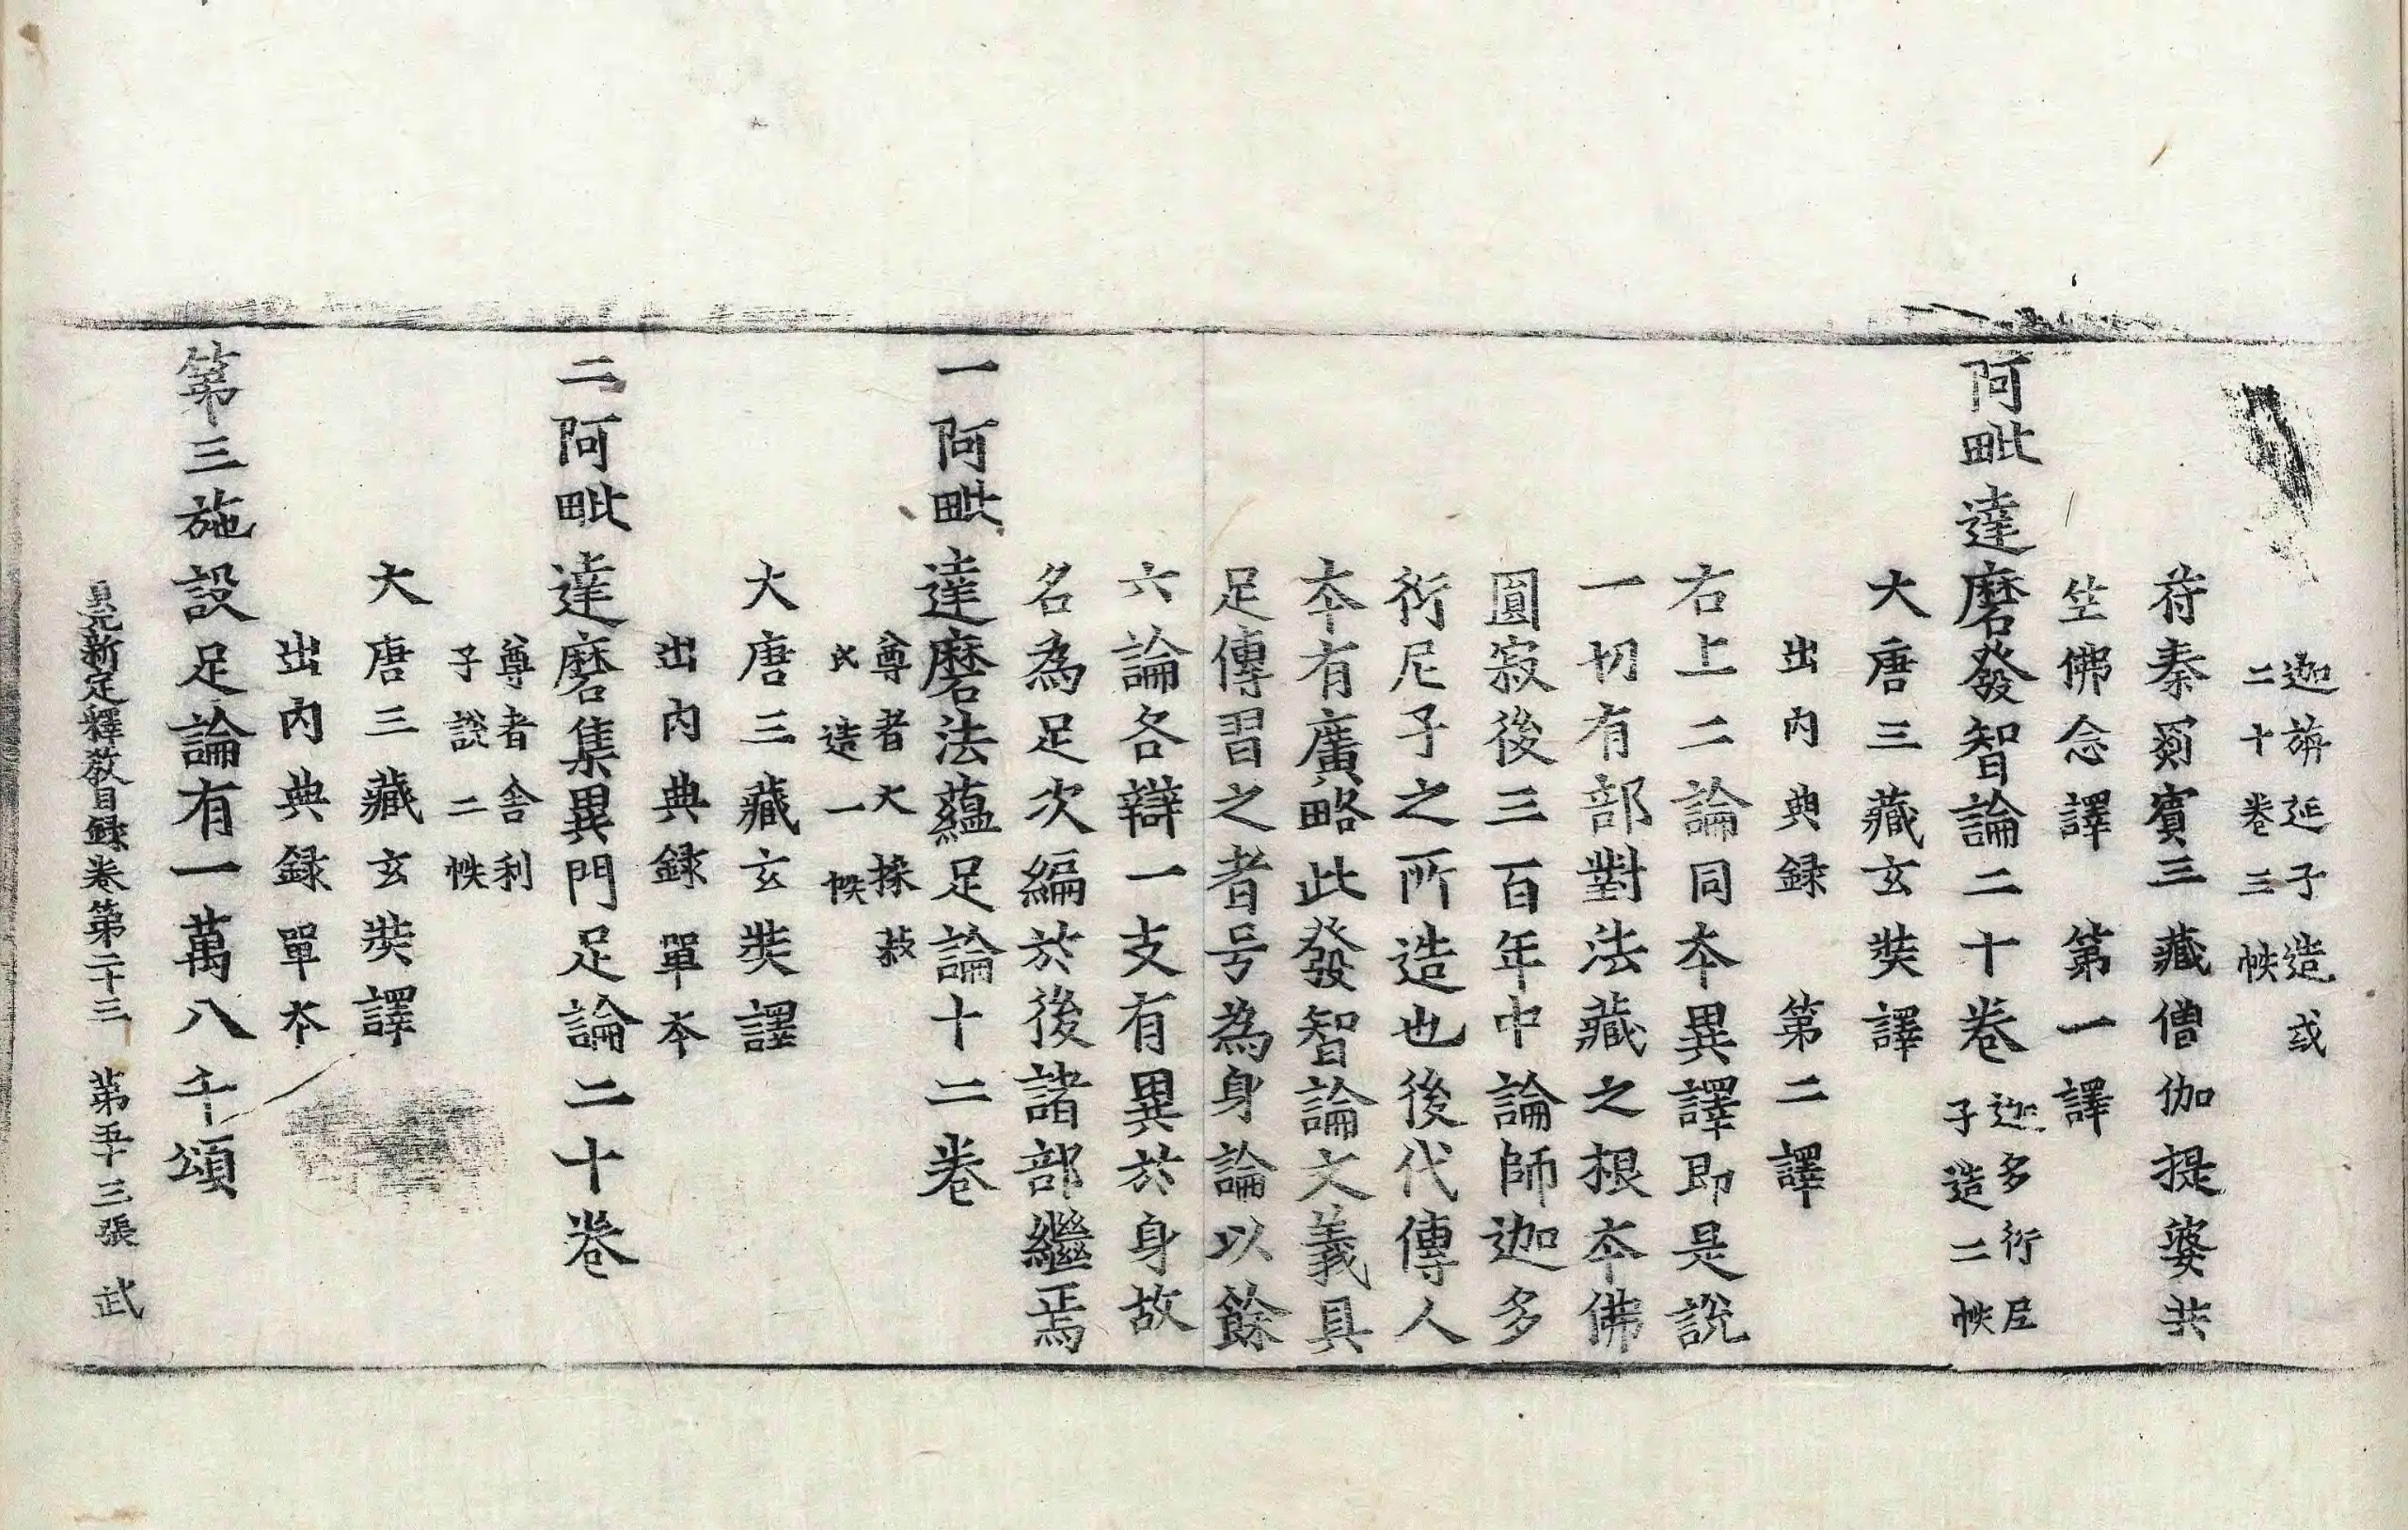 迦旃延子造或
二十卷三帙
苻秦罽賓三藏僧伽提婆共
竺佛念譯　第一譯
阿毗達磨發智論二十卷
迦多衍尼
子造二帙
大唐三藏玄奘譯
出內典録　第二譯
右上二論同夲異譯即是說
一切有部對法藏之根夲佛
圓寂後三百年中論師迦多
衍尼子之所造也後代傳人
夲有廣略此發智論文義具
足傳習之者号為身論以餘
六論各辯一支有異於身故
名為足次編於後諸部繼焉
一阿毗達磨法蘊足論十二卷
尊者大採菽
氏造一帙
大唐三藏玄奘譯
出內典録單夲
二阿毗達磨集異門足論二十卷
尊者舍利
子說二帙
大唐三藏玄奘譯
出內典録單夲
第三施設足論有一萬八千頌
貞元新定釋教目録卷第二十三　第五十三張　武